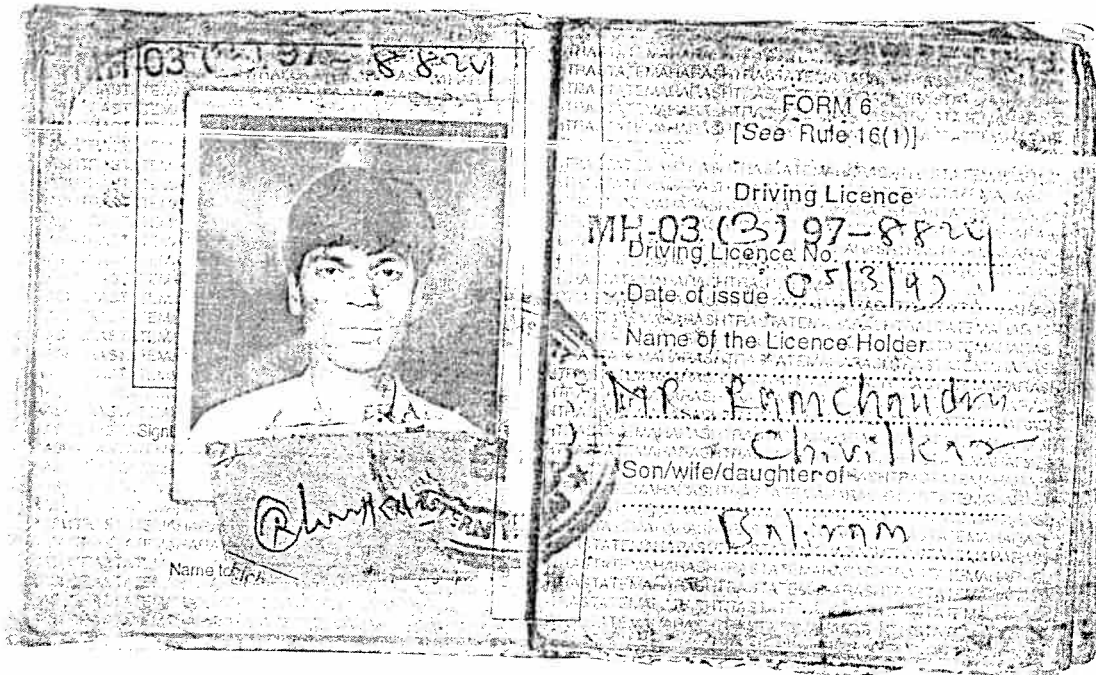 MH-03 (3) 97-8824
Sign
Name to
FORM 6
[See Rule 16(1)]
Driving Licence
MH-03 (3) 97-8824
Driving Licence No.
Date of issue 05/3/97
Name of the Licence Holder
MR. Ramchandra
Chivilkar
Son/wife/daughter of
Baliram